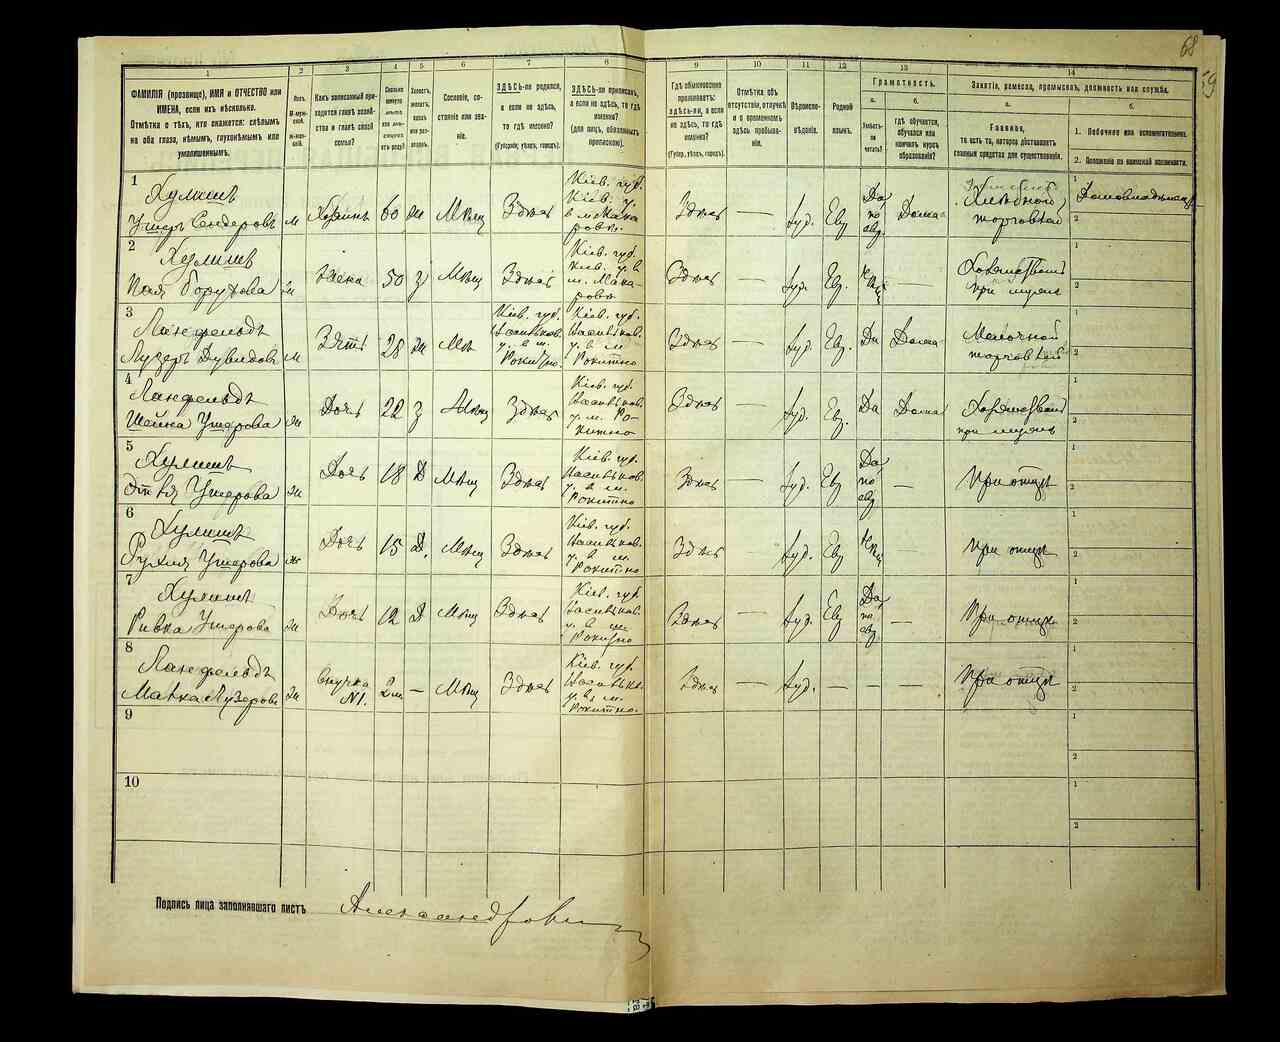 68
59
1 2 3 4 5 6 7 8 9 10 11 12 13 14
ФАМИЛІЯ (прозвище), ИМЯ и ОТЧЕСТВО или
ИМЕНА, если ихъ нѣсколько.
Отмѣтка о тѣхъ, кто окажется: слѣпымъ
на оба глаза, нѣмымъ, глухонѣмымъ или
умалишеннымъ.
Полъ.
М-муж-
ской.
Ж-жен-
скій.
Какъ записанный при-
ходится главѣ хозяй-
ства и главѣ своей
семьи?
Сколько
минуло
лѣтъ
или мѣсяцевъ
отъ роду?
Холостъ,
женатъ,
вдовъ
или раз-
веденъ.
Сословіе, со-
стояніе или зва-
ніе.
ЗДѢСЬ-ли родился,
а если не здѣсь,
то гдѣ именно?
(Губернія, уѣздъ, городъ).
ЗДѢСЬ-ли приписанъ,
а если не здѣсь, то гдѣ
именно?
(для лицъ, обязанныхъ
припискою).
Гдѣ обыкновенно
проживаетъ:
здѣсь-ли, а если
не здѣсь, то гдѣ
именно?
(Губер., уѣздъ, городъ).
Отмѣтка объ
отсутствіи, отлучкѣ
и о временномъ
здѣсь пребыва-
ніи.
Вѣроиспо-
вѣданіе.
Родной
языкъ.
Грамотность.
а.
Умѣетъ-
ли
читать?
б.
гдѣ обучается,
обучался или
кончилъ курсъ
образованія?
Занятіе, ремесло, промыселъ, должность или служба.
а.
Главное,
то есть то, которое доставляетъ
главныя средства для существованія.
б.
1. Побочное или вспомогательное.
2. Положеніе по воинской повинности.
1
Хулишъ
Ушеръ Сендеровъ м Хозяинъ 60 ж Мѣщ Здѣсь
Кіев. губ.
Кіев. у.
в м. Мака
ровѣ.
Здѣсь — Іуд. Евр
Да
по
евр.
Дома
Хлѣбной
торговлей
1 Домовладѣлецъ
2
2
Хулишъ
Пая Борухова ж Жена 50 з Мѣщ Здѣсь
Кіев. губ.
Кіев. у. в
м. Мака
ровѣ
Здѣсь — Іуд. Евр. —
Хозяйство
при мужѣ
1
2
3
Ланфельдъ
Лузеръ Дувидовъ м Зять 28 ж Мѣ
Кіев. губ.
Васильков.
у. в м.
Рокитно.
Кіев. губ.
Васильков.
у. в м
Рокитно
Здѣсь — Іуд. Евр. Да Дома
Мелочной
торговлей
1
2
4
Ланфельдъ
Шейна Ушерова ж Дочь 22 з Мѣщ Здѣсь
Кіев. губ.
Васильков.
у. м. Ро-
китно
Здѣсь — Іуд. Евр. Да Дома
Хозяйство
при мужѣ
1
2
5
Хулишъ
Ушерова ж Дочь 18 Д Мѣщ Здѣсь
Кіев. губ.
Васильков.
у. в м.
Рокитно
Здѣсь — Іуд. Евр
Да
по
евр
— При отцѣ
1
2
6
Хулишъ
Рухля Ушерова ж Дочь 15 Д. Мѣщ Здѣсь
Кіев. губ.
Васильков.
у. в м.
Рокитно
Здѣсь — Іуд. Евр При отцѣ
1
2
7
Хулишъ
Ривка Ушерова ж Дочь 12 Д Мѣщ Здѣсь
Кіев. губ
Васильков.
у. в м.
Рокитно
Здѣсь — Іуд. Евр
Да
по
евр
— При отцѣ
1
2
8
Ланфельдъ
Малка Лузерова ж
Внучка
№1.
2 м — Мѣщ Здѣсь
Кіев. губ
Васильк.
у. в м.
Рокитно.
Здѣсь — Іуд. — При отцѣ
1
2
9
1
2
10
1
2
Подпись лица заполнявшаго листъ